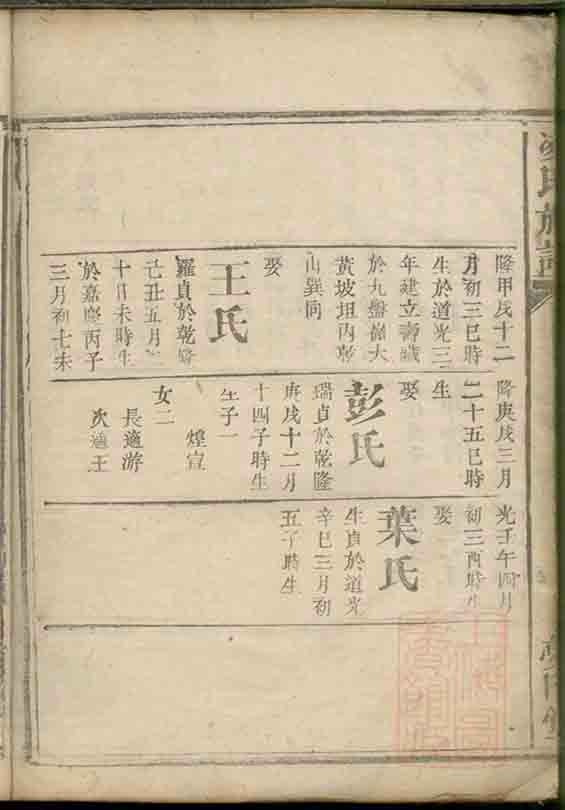 隆甲戌十二
月初三巳時
生於道光三
年建立壽藏
於九盤嶺大
黃坡坦內乾
山巽向
娶
王氏
羅貞於乾隆
己丑五月二
十日未時生
於嘉慶丙子
三月初七未
隆庚戌三月
二十五巳時
生
娶
彭氏
瑞貞於乾隆
庚戌十二月
十四子時生
生子一
煌宣
女二
長適游
次適王
光壬午四月
初三酉時生
娶
葉氏
生貞於道光
辛巳三月初
五子時生
氏族譜